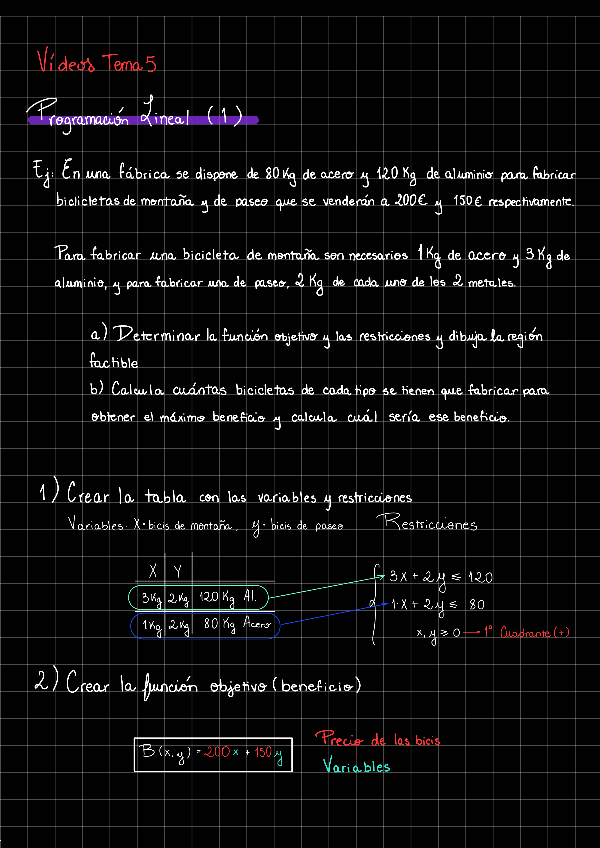 Vídeos Tema 5
Programación Lineal (1)
Ej: En una fábrica se dispone de 80 Kg de acero y 120 Kg de aluminio para fabricar
biclicletas de montaña y de paseo que se venderán a 200€ y 150€ respectivamente.
Para fabricar una bicicleta de montaña son necesarios 1 Kg de acero y 3 Kg de
aluminio, y para fabricar una de paseo, 2 Kg de cada uno de los 2 metales.
a) Determinar la función objetivo y las restricciones y dibuja la región
factible
b) Calcula cuántas bicicletas de cada tipo se tienen que fabricar para
obtener el máximo beneficio y calcula cuál sería ese beneficio.
1) Crear la tabla con las variables y restricciones
Variables: X = bicis de montaña, y = bicis de paseo Restricciones
X Y
3Kg 2Kg 120 Kg Al. 3x + 2y ≤ 120
1Kg 2Kg 80 Kg Acero 1·x + 2y ≤ 80
x, y ≥ 0 — 1º Cuadrante (+)
2) Crear la función objetivo (beneficio)
B(x, y) = 200x + 150y
Precio de las bicis
Variables